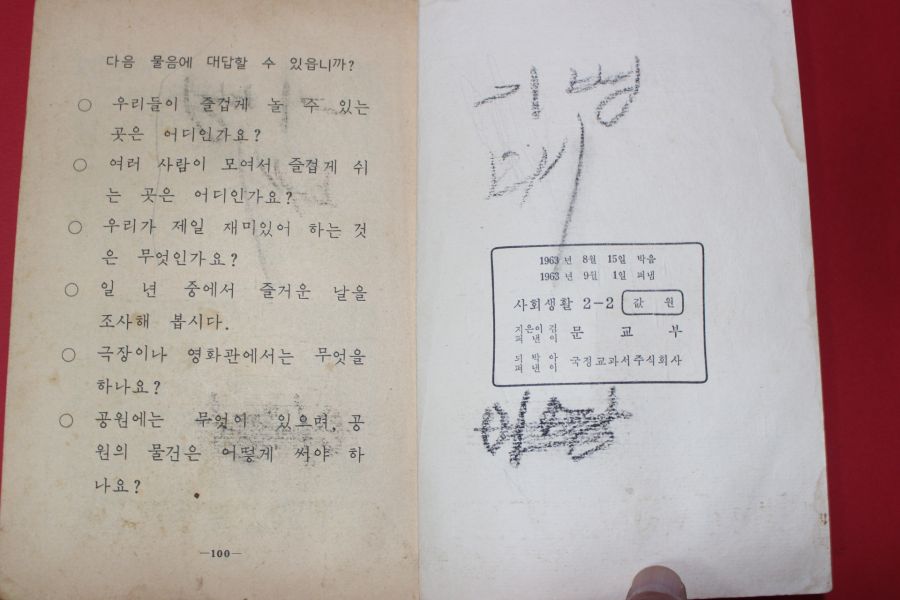 다음 물음에 대답할 수 있읍니까?
○ 우리들이 즐겁게 놀 수 있는
곳은 어디인가요?
○ 여러 사람이 모여서 즐겁게 쉬
는 곳은 어디인가요?
○ 우리가 제일 재미있어 하는 것
은 무엇인가요?
○ 일 년 중에서 즐거운 날을
조사해 봅시다.
○ 극장이나 영화관에서는 무엇을
하나요?
○ 공원에는 무엇이 있으며, 공
원의 물건은 어떻게 써야 하
나요?
—100—
1963년 8월 15일 박음
1963년 9월 1일 펴냄
사회생활 2-2 값 원
지은이 겸
펴낸이 문교부
펴낸이 국정교과서주식회사